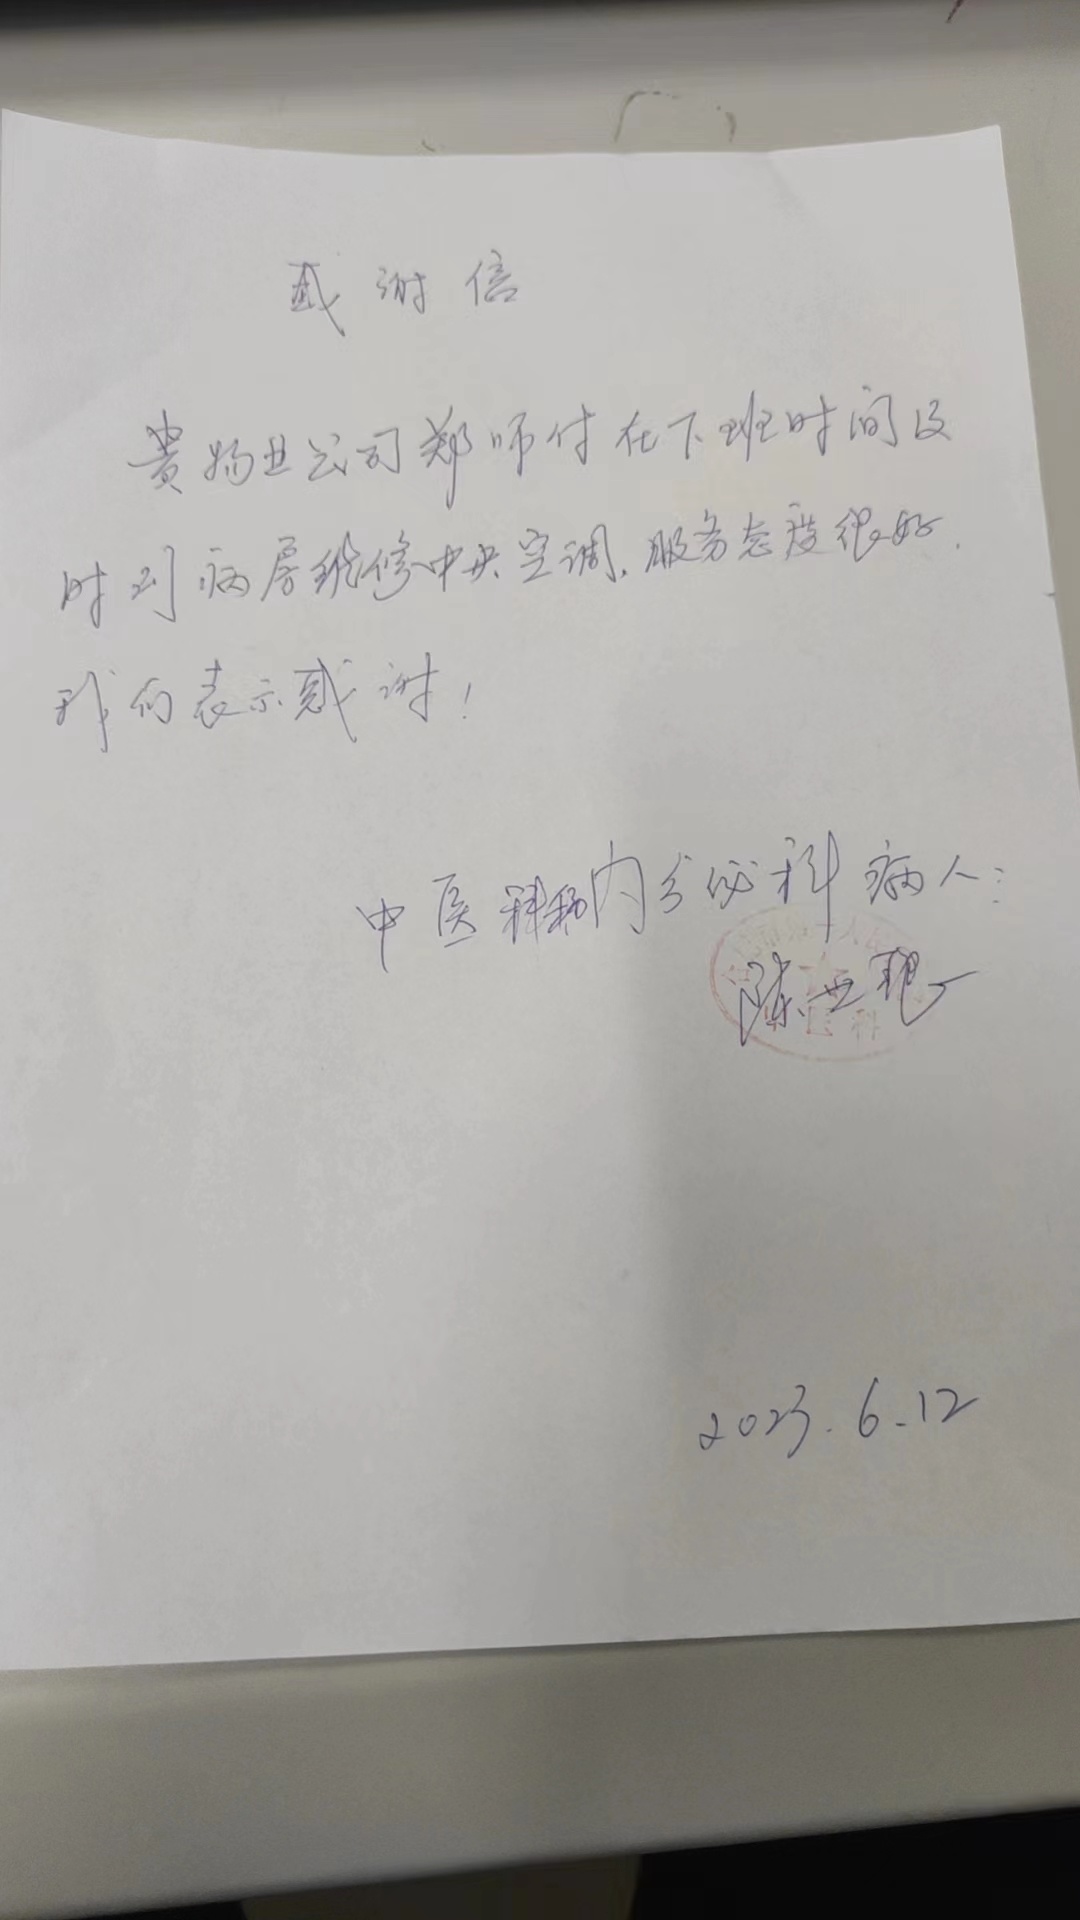 感谢信
贵物业公司郑师付在下班时间及
时到病房维修中央空调，服务态度很好．
我们表示感谢！
中医科和内分泌科病人：
陈亚
中医科
2023.6.12